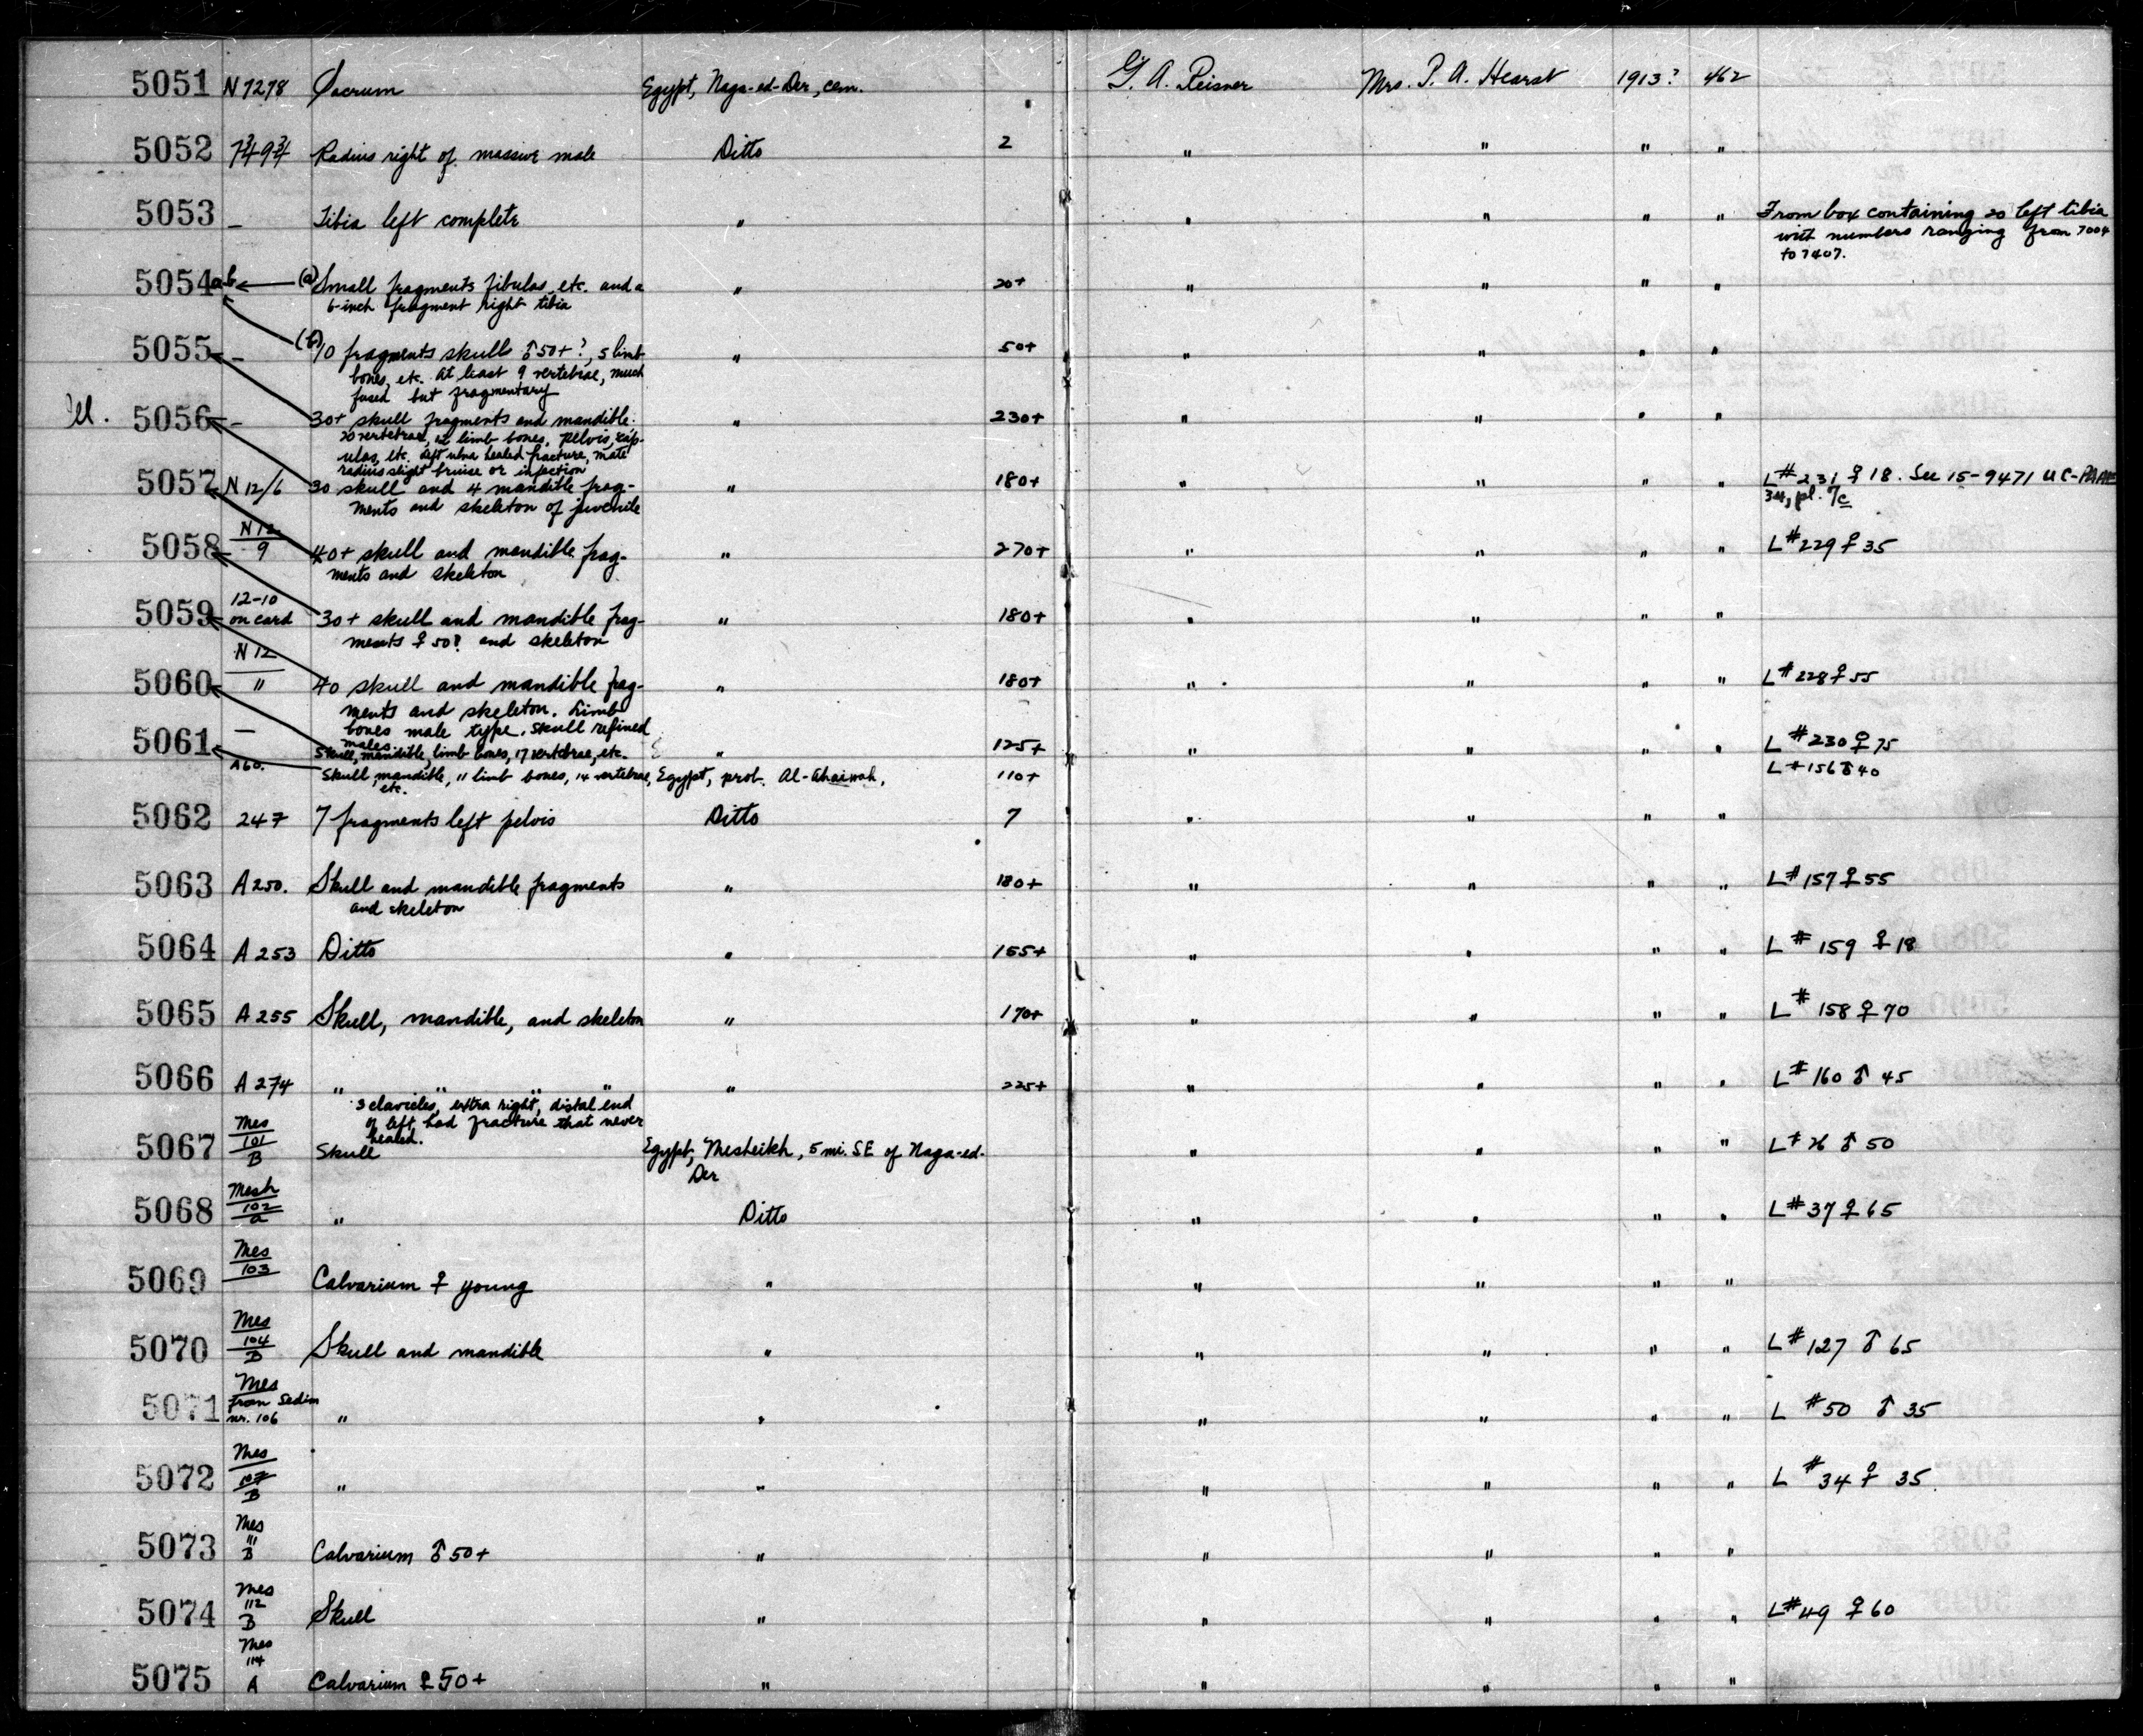 5051 N7278 Sacrum Egypt, Naga-ed-Der, cem. G. A. Reisner Mrs. P. A. Hearst 1913? 462
5052 Radius right of massive male Ditto 2 " " " "
5053 – Tibia left complete " " " " " From box containing 20 left tibia
with numbers ranging from 7004
to 7407.
5054 ab (a) Small fragments fibulas, etc. and a " 20+ " " " "
6-inch fragment right tibia
5055 – (b) 10 fragments skull ♂ 50+?, 5 limb " 50+ " " " "
bones, etc. At least 9 vertebrae, much
fused but fragmentary
5056 – 30+ skull fragments and mandible. " 230+ " " " "
20 vertebrae, limb bones, pelvis, scap-
ulas, etc. Left ulna healed fracture, mate
radius slight bruise or infection
5057 N12/6 30 skull and 4 mandible frag- " 180+ " " " " L#231 ♀ 18. See 15-9471 UC-PAAE
ments and skeleton of juvenile pl. 7c
5058 N12/9 40+ skull and mandible frag- " 270+ " " " " L#229 ♀ 35
ments and skeleton
5059 12-10 on card 30+ skull and mandible frag- " 180+ " " " "
ments ♀ 50? and skeleton
5060 N12/" 40 skull and mandible frag- " 180+ " " " " L#228 ♀ 55
ments and skeleton. Limb
bones male type. Skull refined
males
5061 – Skull, mandible, limb bones, 17 vertebrae, etc. " 125+ " " " " L#230 ♀ 75
A60. Skull, mandible, 11 limb bones, 14 vertebrae, Egypt, prob. Al-Ahaiwah, 110+ L#156 ♂ 40
etc.
5062 247 7 fragments left pelvis Ditto 7 " " " "
5063 A250. Skull and mandible fragments " 180+ " " " " L#157 ♀ 55
and skeleton
5064 A253 Ditto " 155+ " " " " L#159 ♀ 18
5065 A255 Skull, mandible, and skeleton " 170+ " " " " L#158 ♀ 70
5066 A274 " " " " " 225+ " " " " L#160 ♂ 45
3 clavicles, extra right, distal end
of left had fracture that never
healed.
5067 Mes 101 B Skull Egypt, Mesheikh, 5 mi. SE of Naga-ed- " " " " L#26 ♂ 50
Der
5068 Mesh 102 a " Ditto " " " " L#37 ♀ 65
5069 Mes 103 Calvarium ♀ young " " " " "
5070 Mes 104 B Skull and mandible " " " " " L#127 ♂ 65
5071 Mes from Sedim nr. 106 " " " " " " L#50 ♂ 35
5072 Mes 107 B " " " " " " L#34 ♀ 35
5073 Mes 111 B Calvarium ♂ 50+ " " " " "
5074 Mes 112 B Skull " " " " " L#49 ♀ 60
5075 Mes 114 A Calvarium ♀ 50+ " " " " "